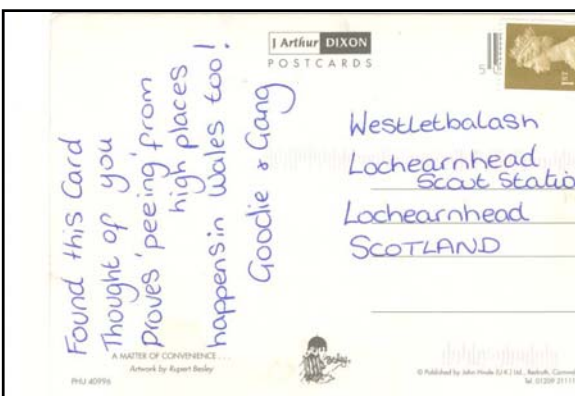 Found this Card
Thought of you
Proves 'peeing' from
high places
happens in Wales too!
Goodie & Gang
J Arthur DIXON
POSTCARDS
1ST
Westletbalash
Lochearnhead
Scout Statio
Lochearnhead
SCOTLAND
A MATTER OF CONVENIENCE . . .
Artwork by Rupert Besley
PHU 40996
Besley.
© Published by John Hinde (U.K.) Ltd., Redruth, Cornwal
Tel: 01209 21111